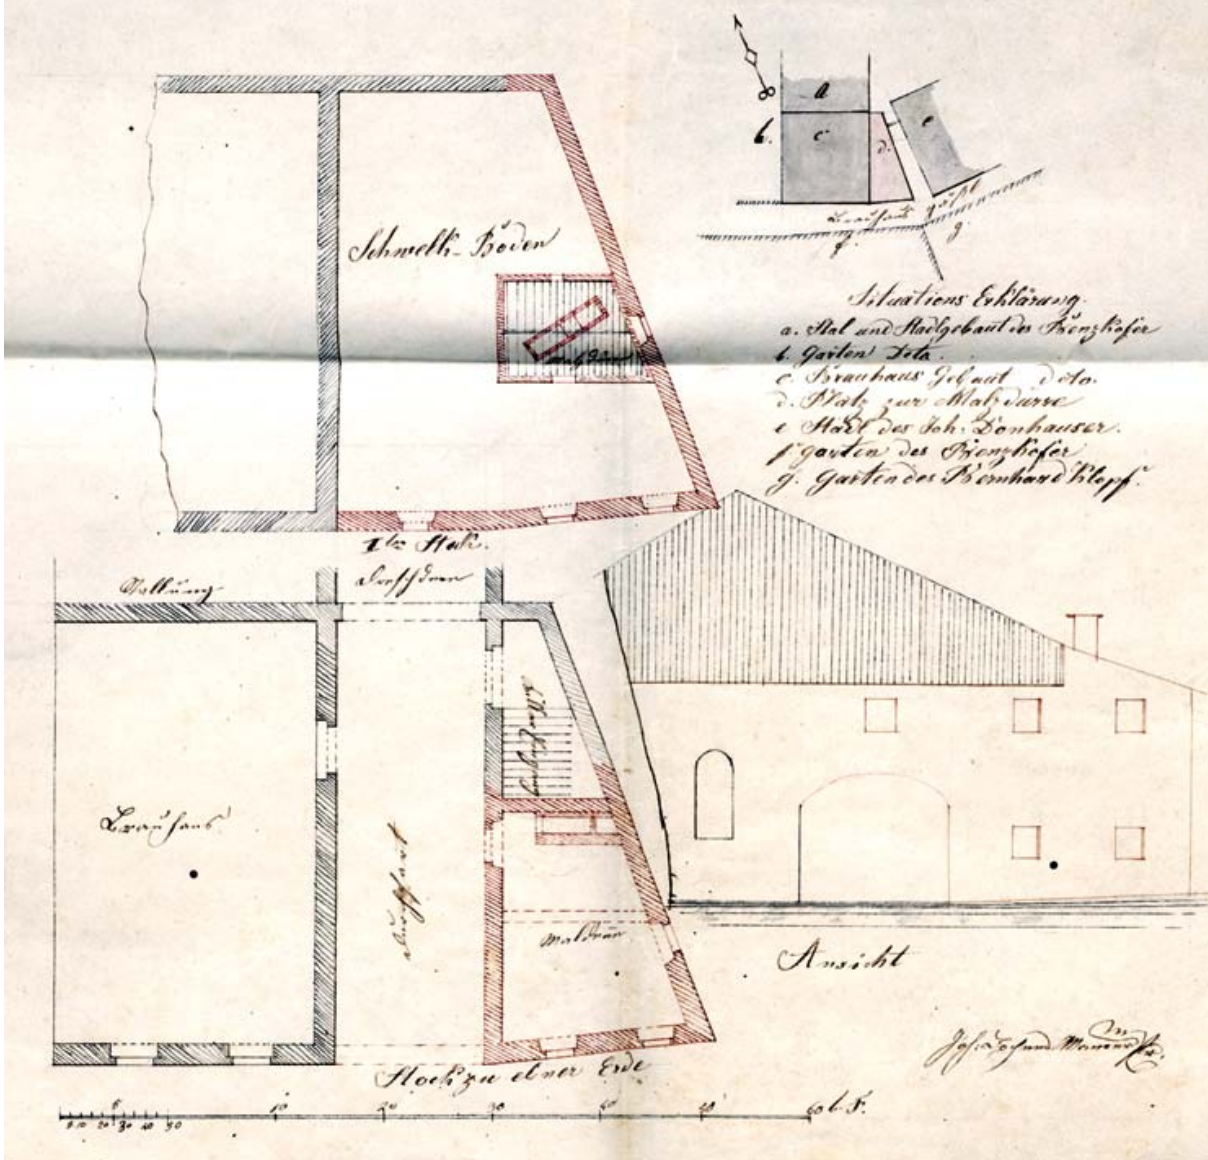 a
b.
c
d.
e
Brauhaus gäßl
f.
g.
Schwelk-Böden
Situations Erklärung.
a. Stal und Stadlgebaut des Prenzhofer
b. Garten Deto.
c. Brauhaus Gebaut Deto.
d. Platz zur Malzdürre
e Stadl des Joh: Donhauser.
f garten des Prenzhofer
g. Garten des Bernhard Klopf.
I ter Stok.
Stallung
Dreschtenn
Brauhaus
Durchfart
Ansicht
Stock zu ebner Erde
5 10 20 30 40 50
10 20 30 40 50 60 b. F.